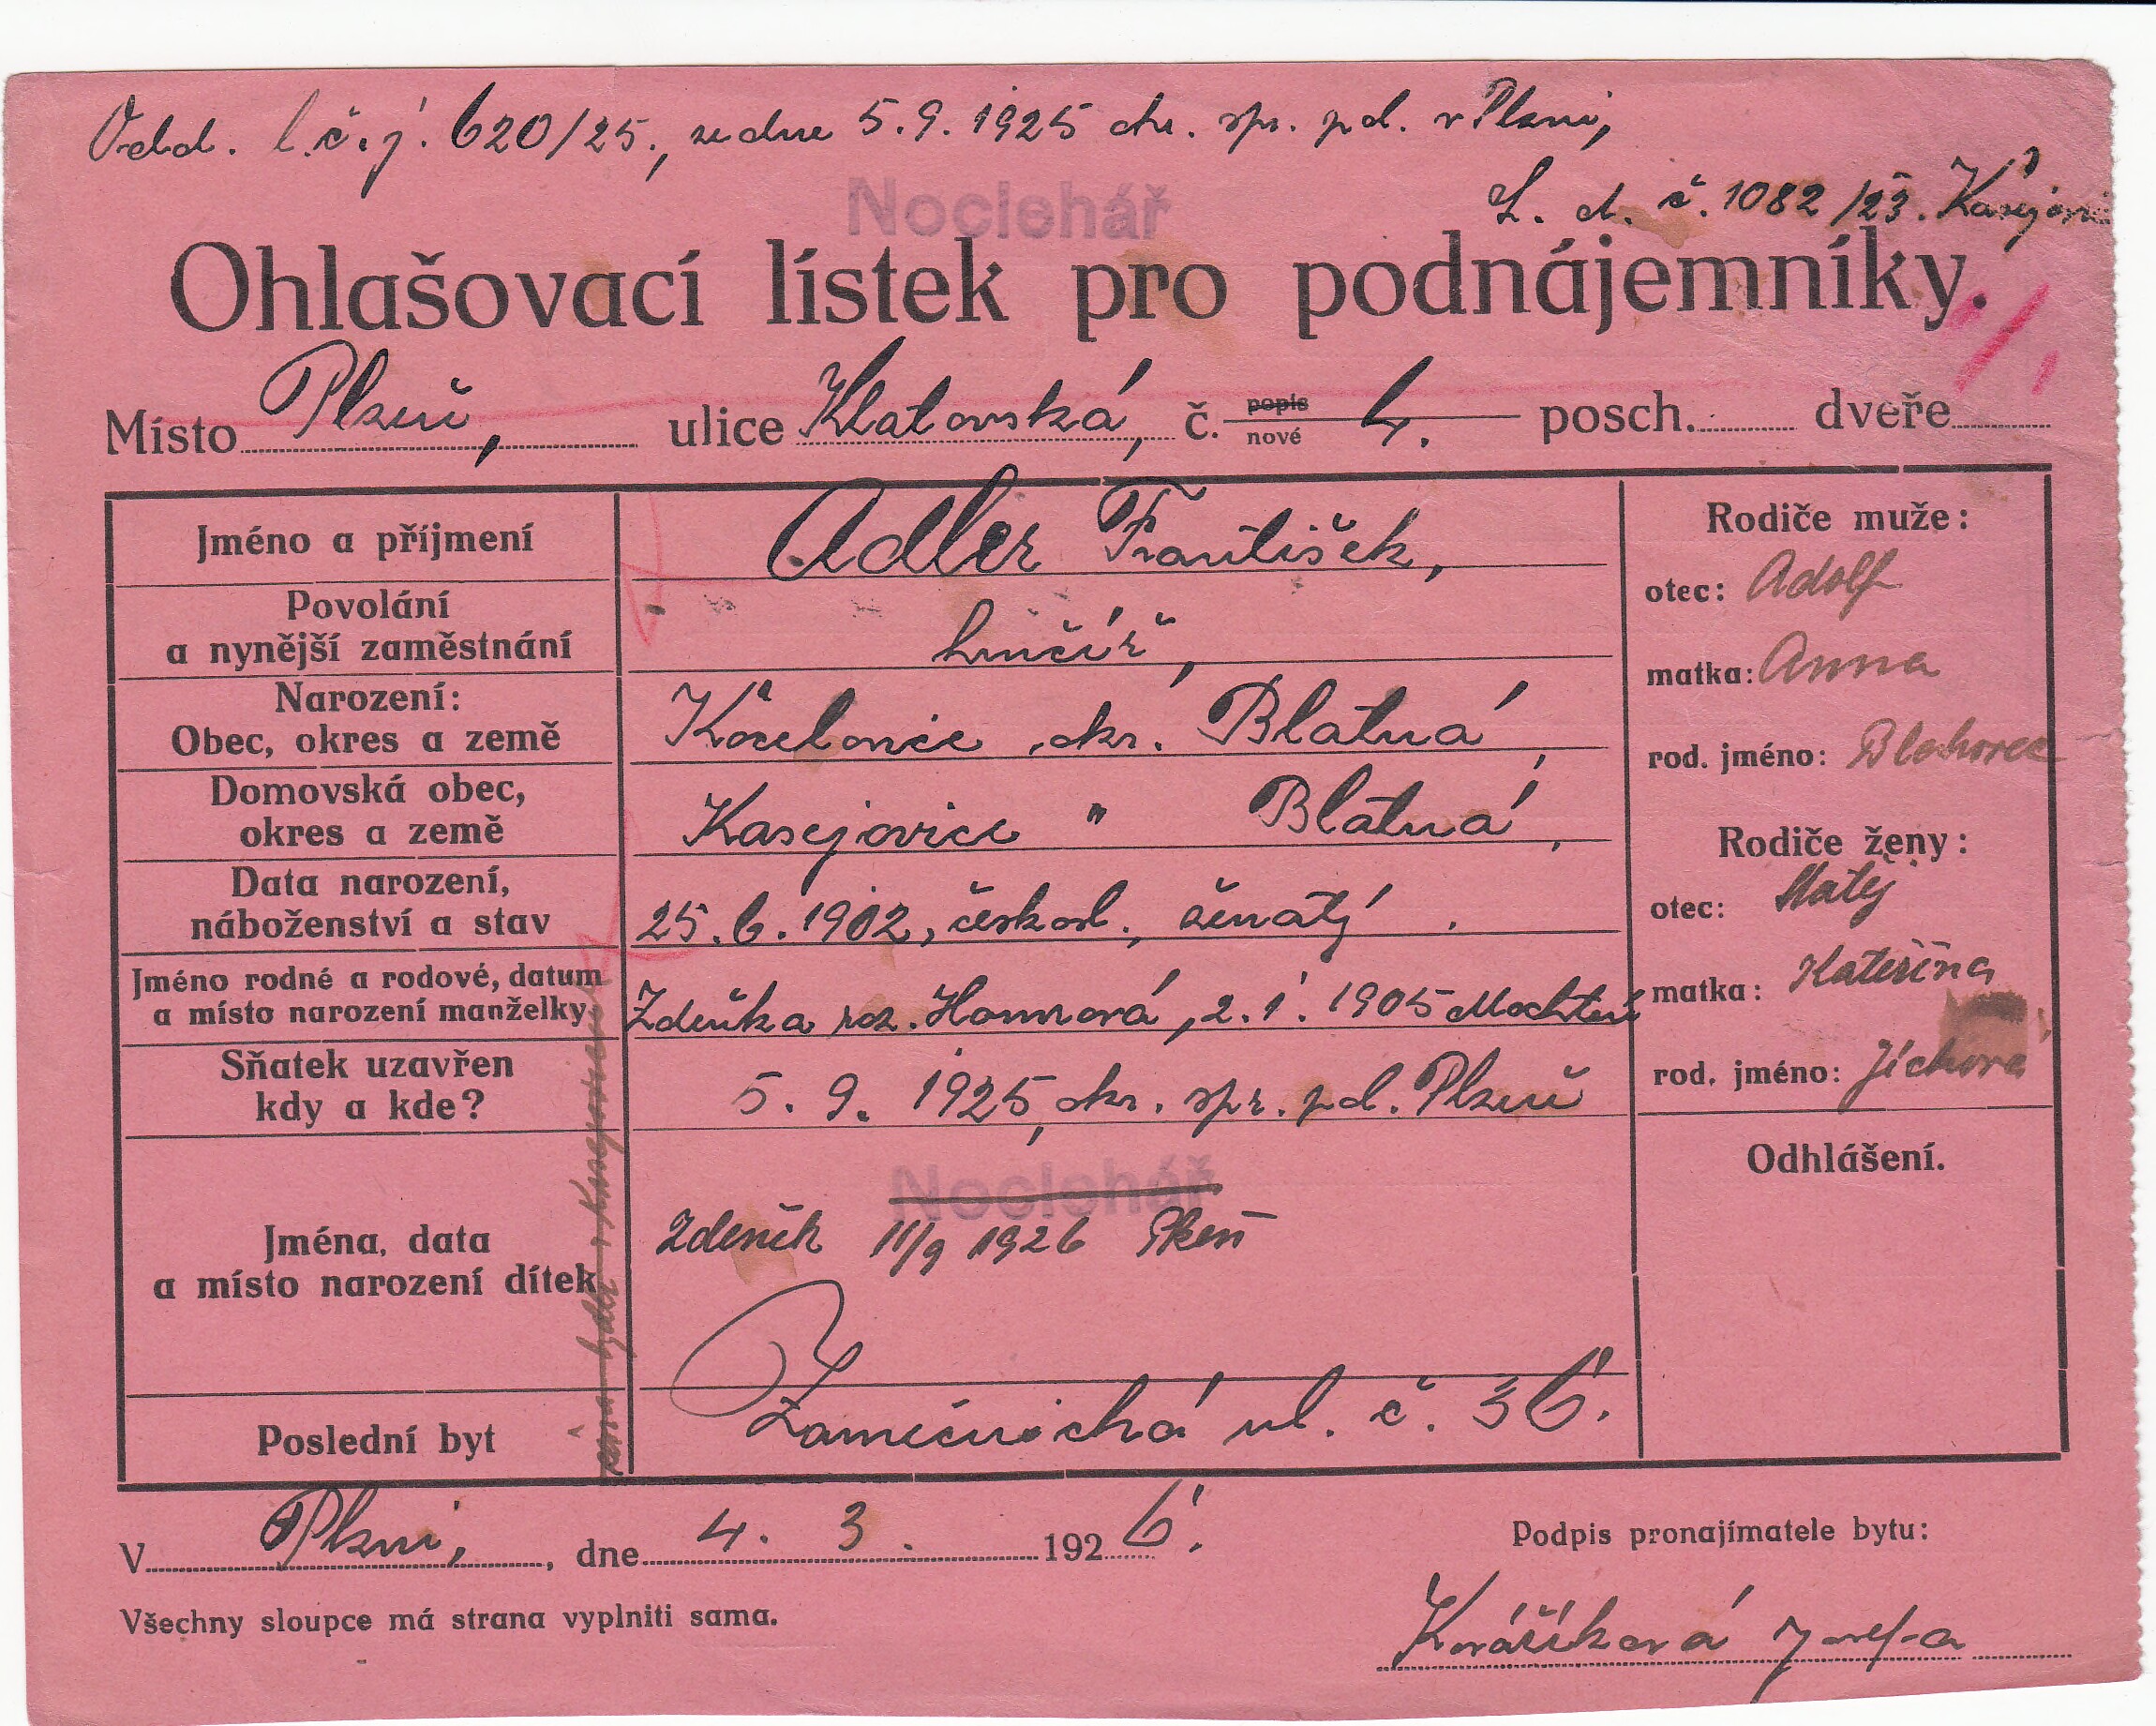 Odd. l. č. j. 620/25., ze dne 5. 9. 1925 okr. spr. pol. v Plzni,
Noclehář
L. d. č. 1082/23. Kasejovice
Ohlašovací lístek pro podnájemníky.
Místo Plzeň, ulice Klatovská, č. popis nové 4. posch. dveře
Jméno a příjmení Adler František,
Povolání
a nynější zaměstnání hrnčíř,
Narození:
Obec, okres a země Kozlovice, okr. Blatná,
Domovská obec,
okres a země Kasejovice " Blatná,
Data narození,
náboženství a stav 25. 6. 1902, českosl., ženatý.
Jméno rodné a rodové, datum
a místo narození manželky Zdeňka roz. 2. 1. 1905
Sňatek uzavřen
kdy a kde? 5. 9. 1925, okr. spr. pol. Plzeň
Noclehář
Jména, data
a místo narození dítek Zdeněk 11/9 1926 Plzeň
Poslední byt Zámečnická ul. č. 36.
Rodiče muže:
otec: Adolf
matka: Anna
rod. jméno:
Rodiče ženy:
otec: Matěj
matka: Kateřina
rod. jméno: Jíchová
Odhlášení.
V Plzni, dne 4. 3. 1926.
Podpis pronajímatele bytu:
Všechny sloupce má strana vyplniti sama.
Kovaříková Josefa